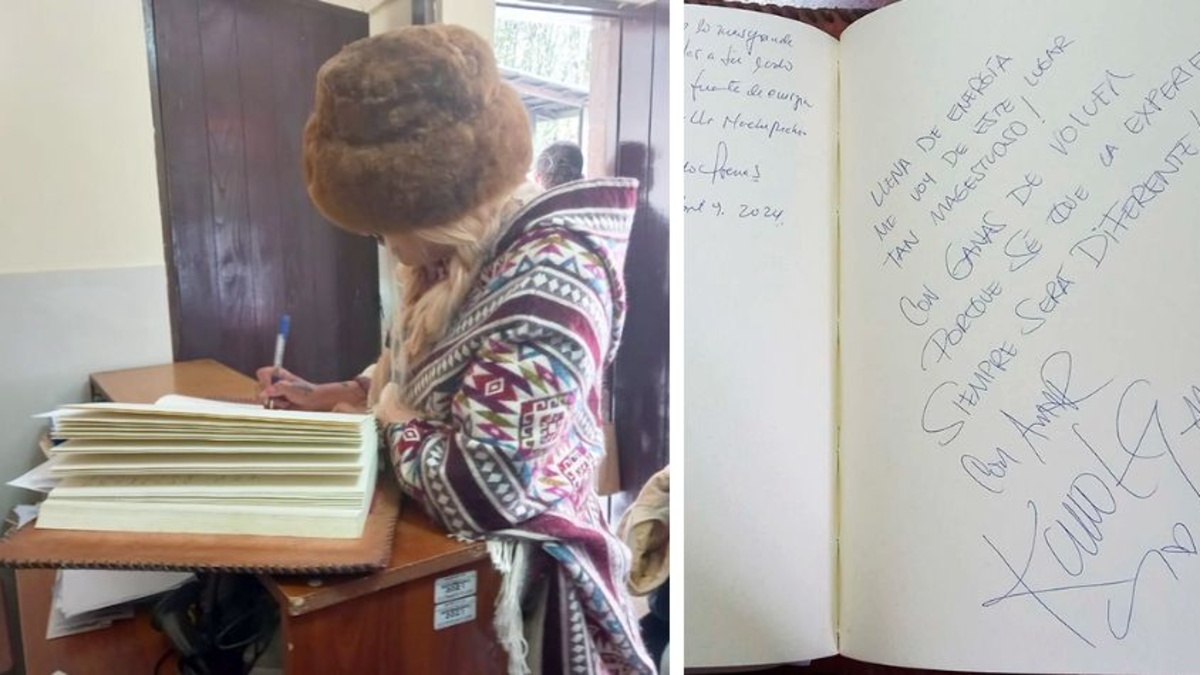 lo mas grande
fuente de energia
Machupicchu
9. 2024
LLENA DE ENERGÍA
ME VOY DE ESTE LUGAR
TAN MAGESTUOSO!
CON GANAS DE VOLVER
PORQUE SÉ QUE LA EXPERIE
SIEMPRE SERÁ DIFERENTE!
CON AMOR
KAROL G
2021
2021